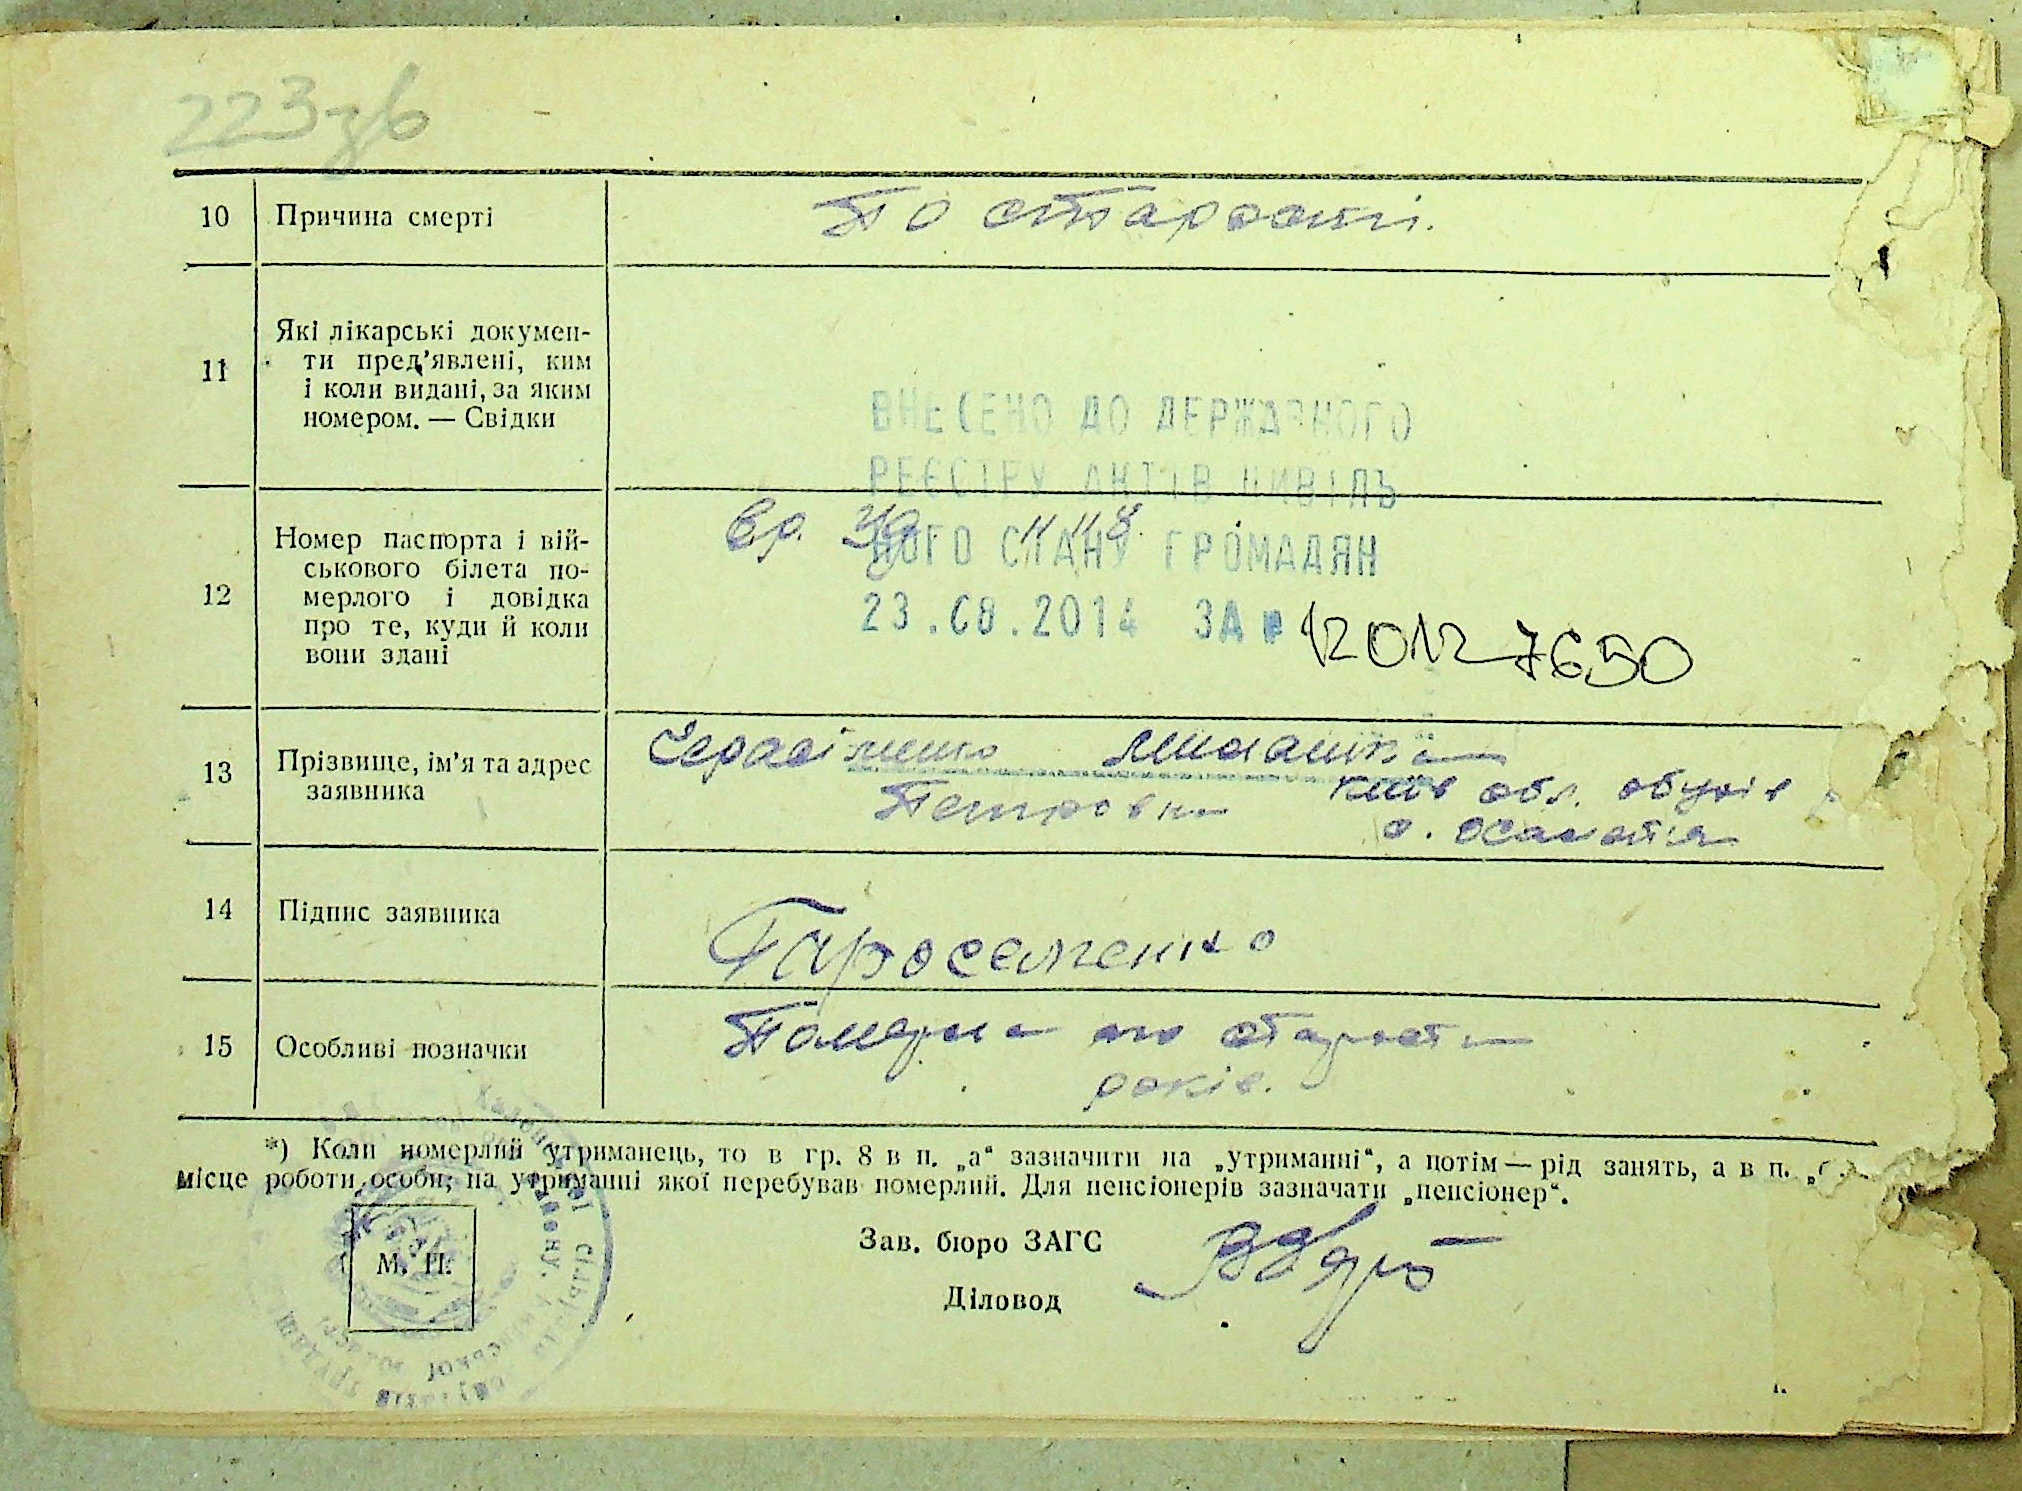 223зв
10 Причина смерті По старості.
11 Які лікарські докумен-
ти пред’явлені, ким
і коли видані, за яким
номером. — Свідки
ВНЕСЕНО ДО ДЕРЖАВНОГО
РЕЄСТРУ АКТІВ ЦИВІЛЬ
НОГО СТАНУ ГРОМАДЯН
23.08.2014 ЗА № 120127650
12 Номер паспорта і вій-
ськового білета по-
мерлого і довідка
про те, куди й коли
вони здані
13 Прізвище, ім’я та адрес
заявника
Петровна Київ обл. обухів
с.
14 Підпис заявника
15 Особливі позначки Померла по старости
років.
*) Коли померлий утриманець, то в гр. 8 в п. „а“ зазначити на „утриманні“, а потім — рід занять, а в п.
місце роботи особи, на утриманні якої перебував померлий. Для пенсіонерів зазначати „пенсіонер“.
М. П.
Зав. бюро ЗАГС
Діловод